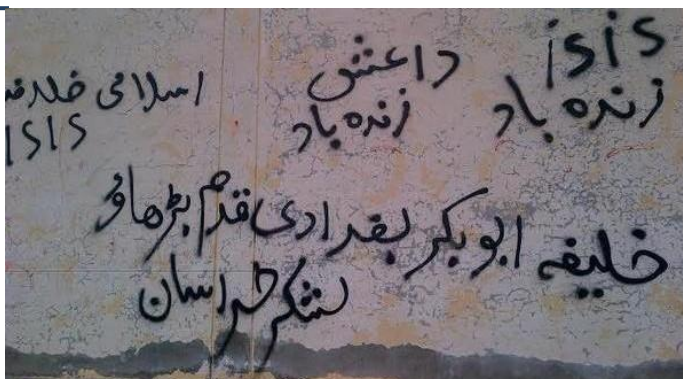 isis
زنده باد
داعش
زنده باد
اسلامی خلافہ
ISIS
خلیفہ ابوبکر بغدادی قدم بڑھاؤ
لشکر خراسان